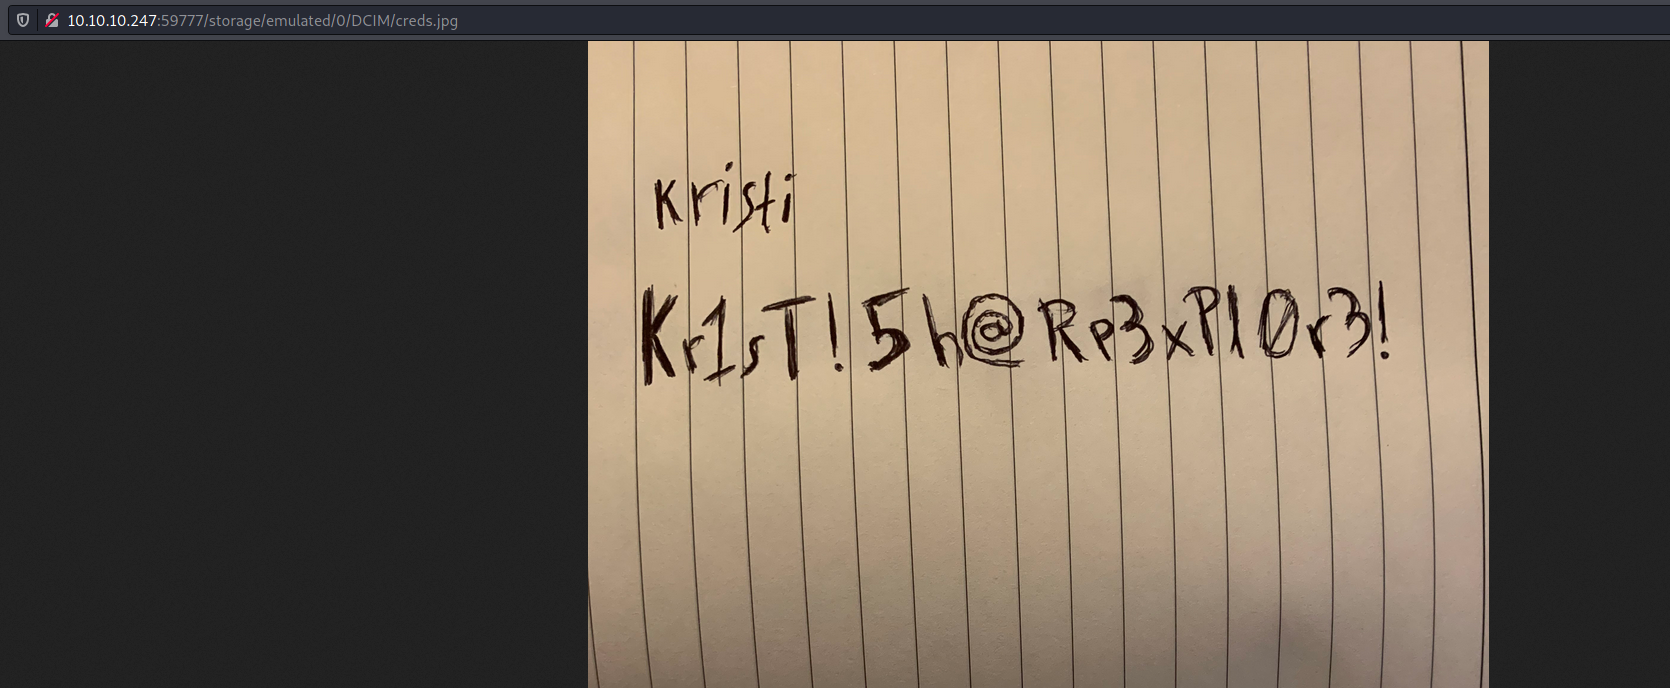 10.10.10.247:59777/storage/emulated/0/DCIM/creds.jpg
Kristi
Kr1sT!5h@Rp3xPl0r3!